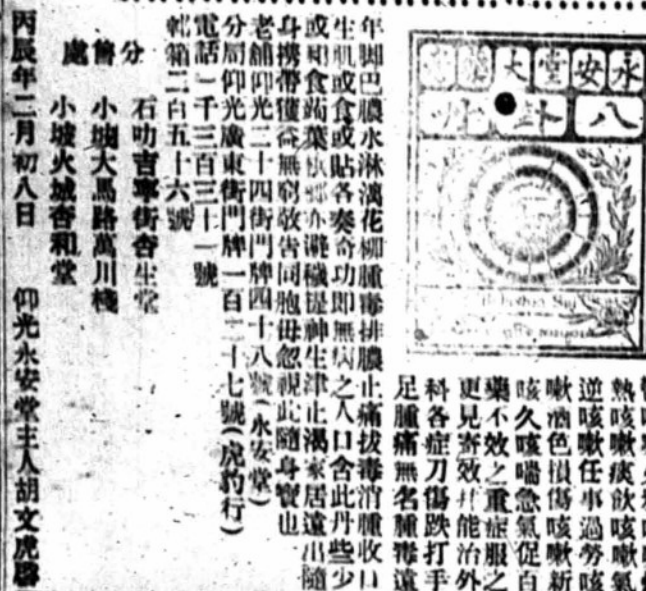 永安堂大藥房
八卦丹
熱咳嗽痰飲咳嗽氣
逆咳嗽任事過勞咳
嗽酒色損傷咳嗽新
咳久咳喘急氣促百
藥不效之重症服之
更見奇效幷能治外
科各症刀傷跌打手
足腫痛無名腫毒遠
年脚巴膿水淋漓花柳腫毒排膿止痛拔毒消腫收口
生肌或食或貼各奏奇功即無病之人口含此丹些少
或和食蒟葉梹榔亦避穢提神生津止渴家居遠出隨
身携帶獲益無窮敬告同胞毋忽視此隨身寶也
老舖仰光二十四街門牌四十八號(永安堂)
分局仰光廣東街門牌一百二十七號(虎豹行)
電話一千三百三十一號
郵箱二百五十六號
分售處
石叻吉寧街杏生堂
小坡大馬路萬川棧
小坡火城杏和堂
丙辰年二月初八日 仰光永安堂主人胡文虎啓